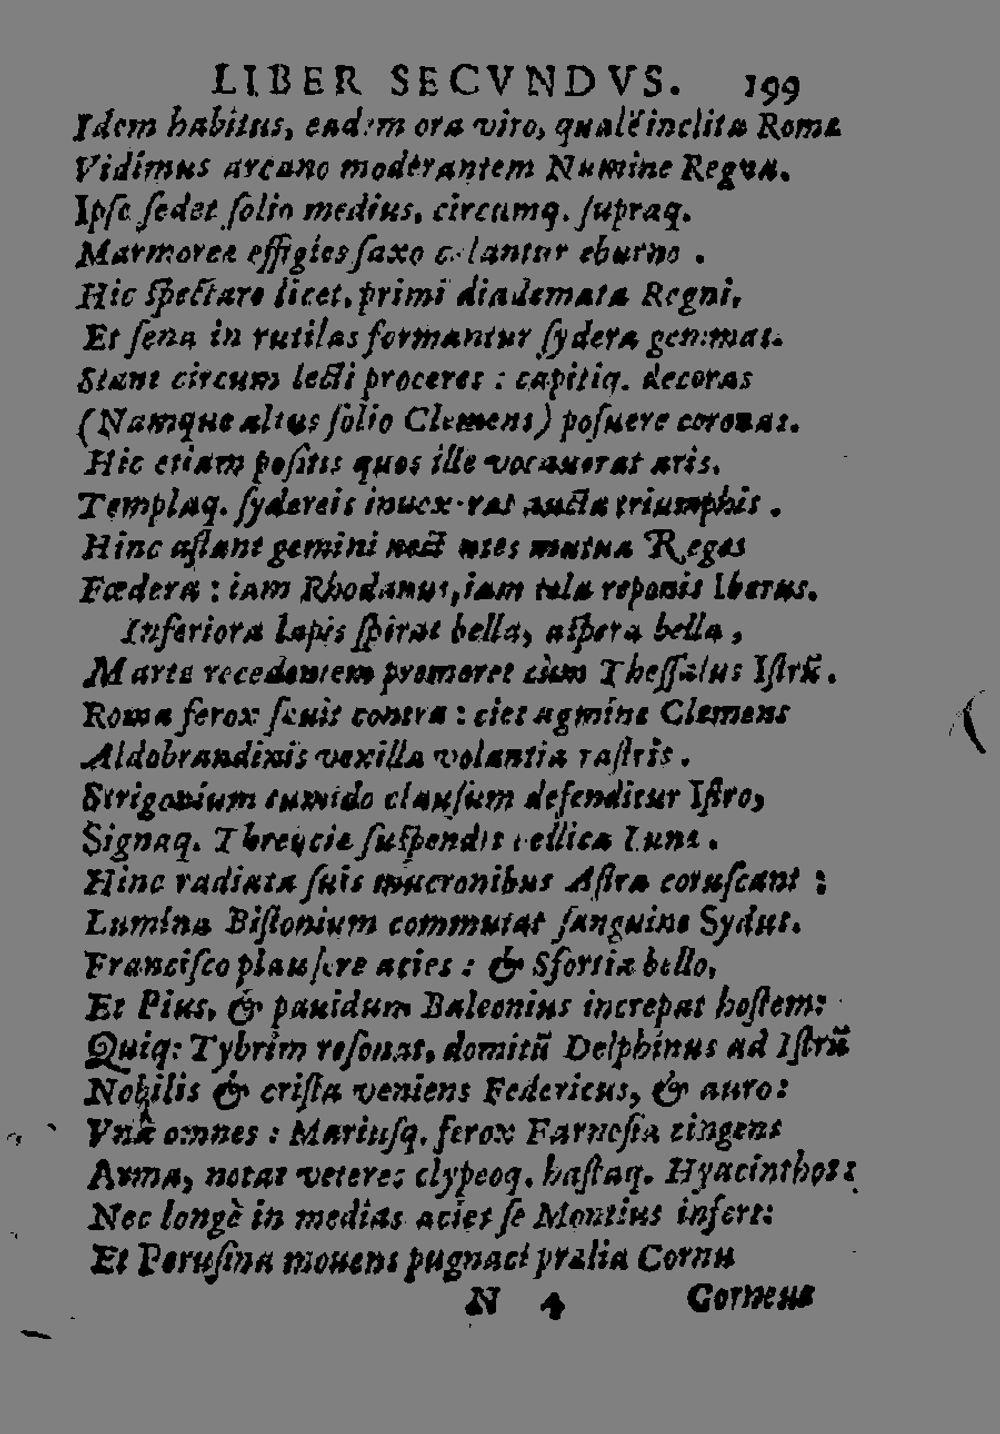 LIBER SECVNDVS. 199
Idem habitus, eadem ora viro, qualẽ inclita Roma
Vidimus arcano moderantem Numine Regna.
Ipſe ſedet ſolio medius, circumq. ſupraq.
Marmoreæ effigies ſaxo cælantur eburno .
Hic ſpectare licet, primi diademata Regni,
Et ſena in rutilas formantur ſydera gemmas.
Stant circum lecti proceres : capitiq. decoras
(Namque altus ſolio Clemens) poſuere coronas.
Hic etiam poſitis quos ille vocauerat aris.
Templaq. ſydereis inuexerat aucta triumphis .
Hinc aſtant gemini nectentes mutua Reges
Fœdera : iam Rhodanus, iam tela reponis Iberus.
Inferiora lapis ſpirat bella, aſpera bella ,
Marte recedentem premeret cùm Theſſalus Iſtrũ.
Roma ferox ſæuit contra : ciet agmina Clemens
Aldobrandinis vexilla volantia raſtris .
Strigonium tumido clauſum defenditur Iſtro,
Signaq. Threyciæ ſuſpendit bellica Lunæ .
Hinc radiata ſuis mucronibus Aſtra coruſcant :
Lumina Biſtonium commutat ſanguine Sydus.
Franciſco plauſere acies : & Sfortia bello,
Et Pius, & pauidum Baleonius increpat hoſtem:
Quiq: Tybrim reſonat, domitũ Delphinus ad Iſtrũ
Nobilis & criſta veniens Federicus, & auro:
Vnà omnes : Mariuſq. ferox Farneſia cingens
Arma, notat veteres clypeoq. haſtaq. Hyacinthos:
Nec longè in medias acies ſe Montius infert:
Et Peruſina mouens pugnaci prælia Cornu
N 4 Corneus